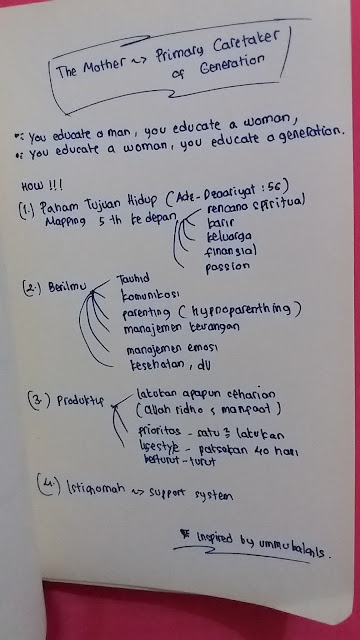 The Mother ~> Primary Caretaker
of Generation
": You educate a man, you educate a woman,
": You educate a woman, you educate a generation.
HOW !!!
(1.) Paham Tujuan Hidup (Adz-Dzaariyat : 56)
Mapping 5 th ke depan
rencana spiritual
karir
keluarga
finansial
passion
(2.) Berilmu
Tauhid
komunikasi
parenting (hypnoparenthing)
manajemen keuangan
manajemen emosi
kesehatan, dll
(3) Produktif
lakukan apapun seharian
(Allah ridho & manfaat)
prioritas - satu 2 lakukan
lifestyle - paksakan 40 hari
berturut-turut
(4.) Istiqomah ~> support system
* Inspired by ummubalqis.